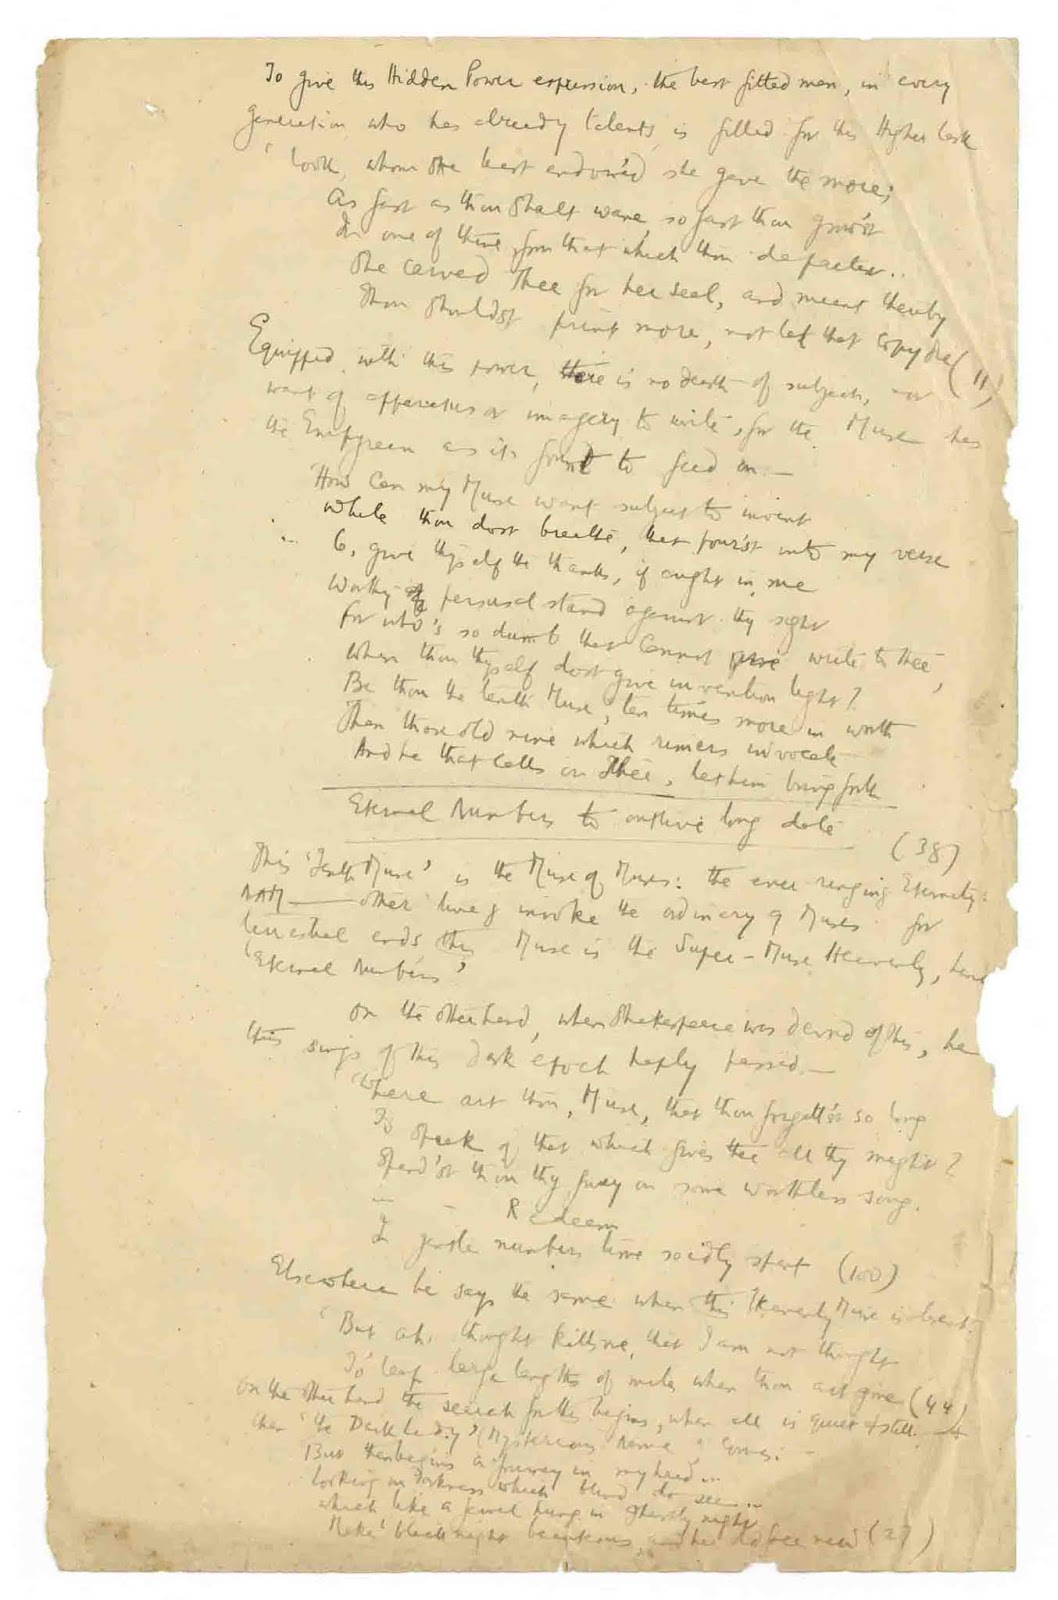 To give this Hidden Power expression, the best fitted men, in every
generation, who has already talents, is filled for this Higher task
'Look, whom she best endow'd she gave the more;
As fast as thou shalt wane, so fast thou grow'st
In one of thine, from that which thou departest..
She carved thee for her seal, and meant thereby
Thou shouldst print more, not let that copy die (11)
Equipped with this power, there is no dearth of subjects, nor
want of apparatus or imagery to write, for the Muse has
the Empyrean as its to feed on —
'How can my Muse want subject to invent
While thou dost breathe, that pour'st into my verse
... O, give thyself the thanks, if aught in me
Worthy of perusal stand against thy sight
For who's so dumb that cannot write to thee,
When thou thyself dost give invention light?
Be thou the tenth Muse, ten times more in worth
Than those old nine which rimers invocate
And he that calls on Thee, let him bring forth
Eternal Numbers to outlive long date (38)
This 'Tenth Muse' is the Muse of Muses: the ever ringing Eternity:
other invoke the ordinary 9 Muses for
terrestrial ends, this Muse is the Super-Muse Heavenly, hence
'Eternal Numbers'
On the other hand, when Shakespeare was denied of this, he
thus sings of this dark epoch haply passed. —
'Where art thou, Muse, that thou forgett'st so long
To speak of that which gives thee all thy might?
Spend'st thou thy fury on some worthless song.
— - Redeem
In gentle numbers time so idly spent (100)
Elsewhere he says the same when this Heavenly Muse is
'But ah, thought kills me, that I am not thought
To leap large lengths of miles when thou art gone (44)
On the other hand the search for this begins, when all is quiet & still —
then 'the Dark Lady' (Mysterious Name) comes: -
But then begins a journey in my head...
looking on darkness which blind do see...
which like a jewel hung in ghastly night
Makes black night beauteous, and her old face new (27)